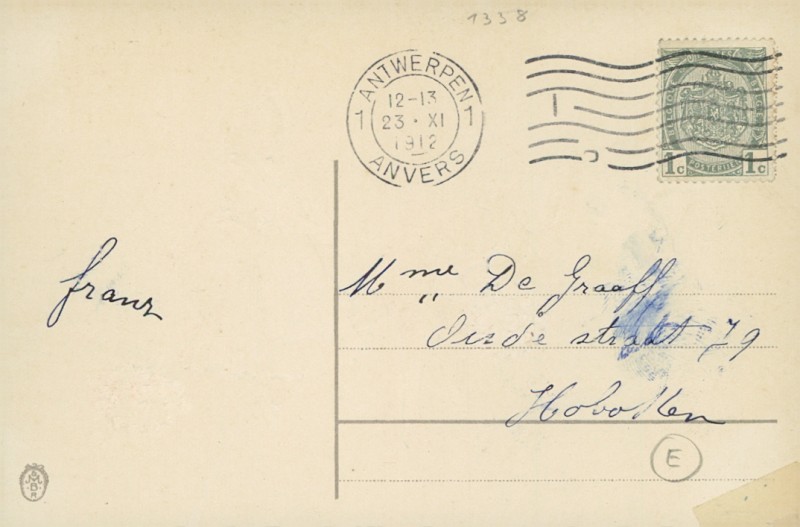 1358
ANTWERPEN
1 12-13 1
23 · XI
1912
ANVERS
1c POSTERIJEN 1c
franz
Mme De Graaff
straat 79
Hoboken
E